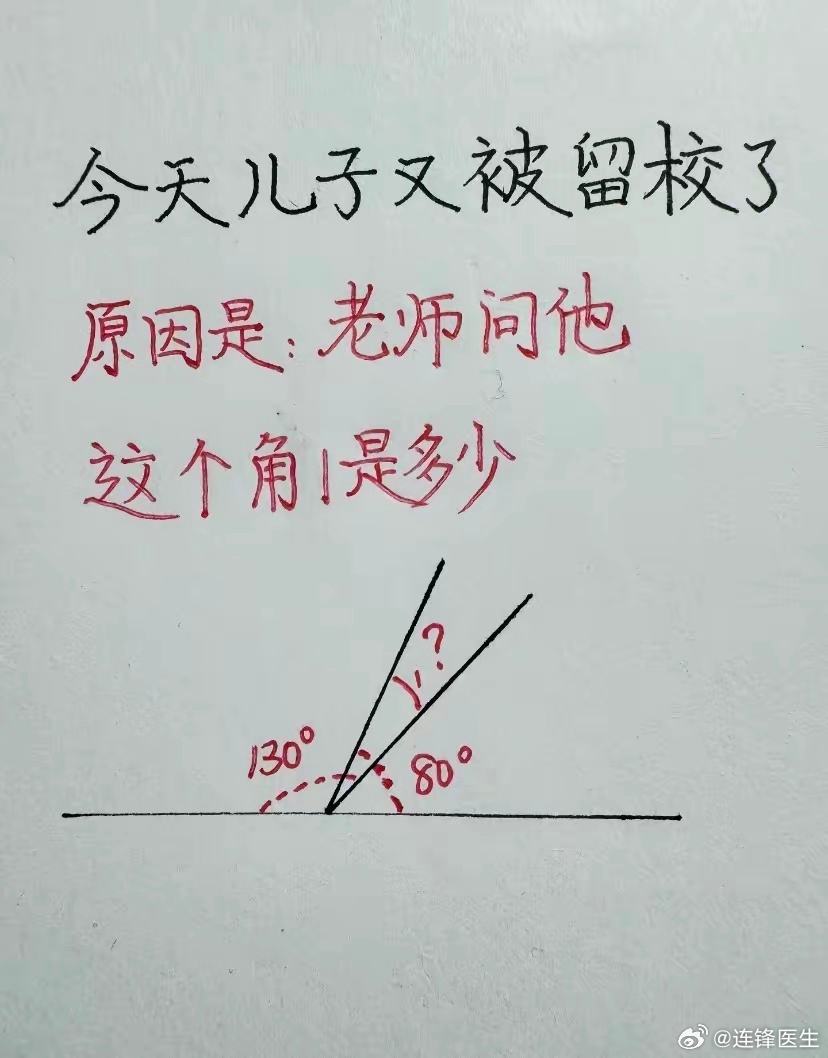 今天儿子又被留校了
原因是:老师问他
这个角1是多少
?
1
130°
80°
@连锋医生